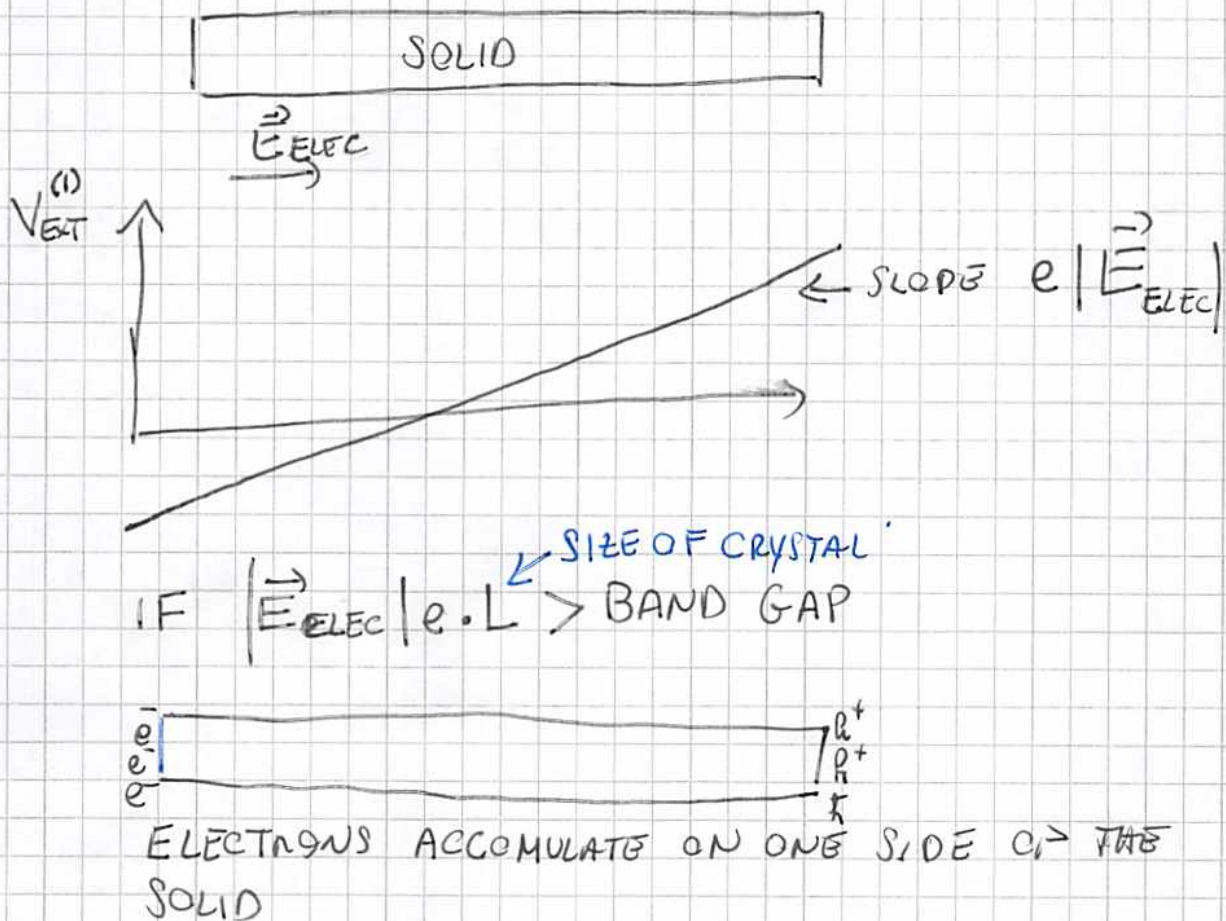 SOLID
E⃗ELEC
V_EXT^(1)
← SLOPE e|E⃗ELEC|
← SIZE OF CRYSTAL
IF |E⃗ELEC|e.L > BAND GAP
e⁻ h⁺
e⁻ h⁺
e⁻ h
ELECTRONS ACCOMULATE ON ONE SIDE OF THE
SOLID